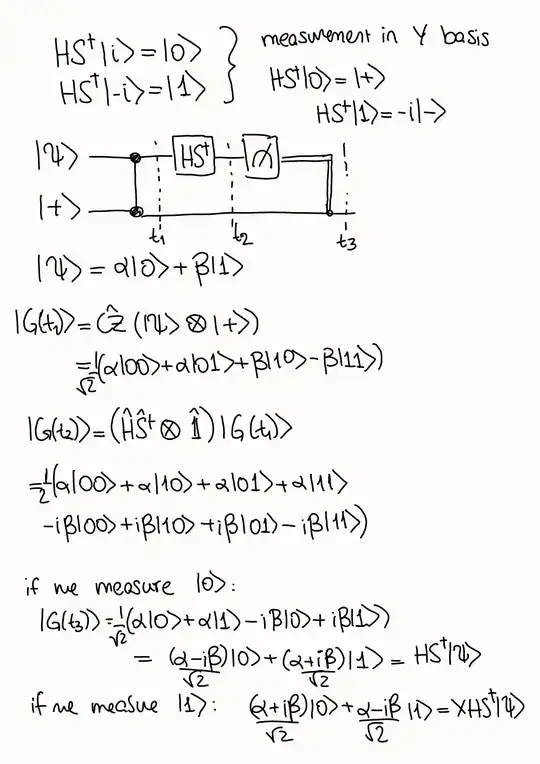 HS†|i⟩=|0⟩
HS†|-i⟩=|1⟩
measurement in Y basis
HS†|0⟩=|+⟩
HS†|1⟩=-i|-⟩
|Ψ⟩ HS†
|+⟩
t₁ t₂ t₃
|Ψ⟩ = α|0⟩+β|1⟩
|G(t₁)⟩= CẐ (|Ψ⟩ ⊗ |+⟩)
=1/√2(α|00⟩+α|01⟩+β|10⟩-β|11⟩)
|G(t₂)⟩=(ĤŜ†⊗ 1̂)|G(t₁)⟩
=1/2(α|00⟩+α|10⟩+α|01⟩+α|11⟩
-iβ|00⟩+iβ|10⟩+iβ|01⟩-iβ|11⟩)
if we measure |0⟩:
|G(t₃)⟩=1/√2(α|0⟩+α|1⟩-iβ|0⟩+iβ|1⟩)
= (α-iβ)/√2|0⟩+(α+iβ)/√2|1⟩= HS†|Ψ⟩
if we measure |1⟩: (α+iβ)/√2|0⟩+α-iβ/√2|1⟩=XHS†|Ψ⟩